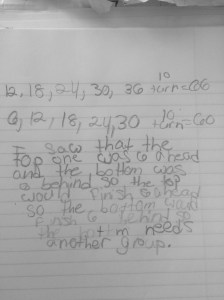 12, 18, 24, 30, 36 10 turn=66
6, 12, 18, 24, 30 10 turn=60
I saw that the
top one was 6 ahead
and the bottom was
6 behind so the top
would finish 6 ahead
so the bottom
finish 6 behind so
the bottom needs
another group.